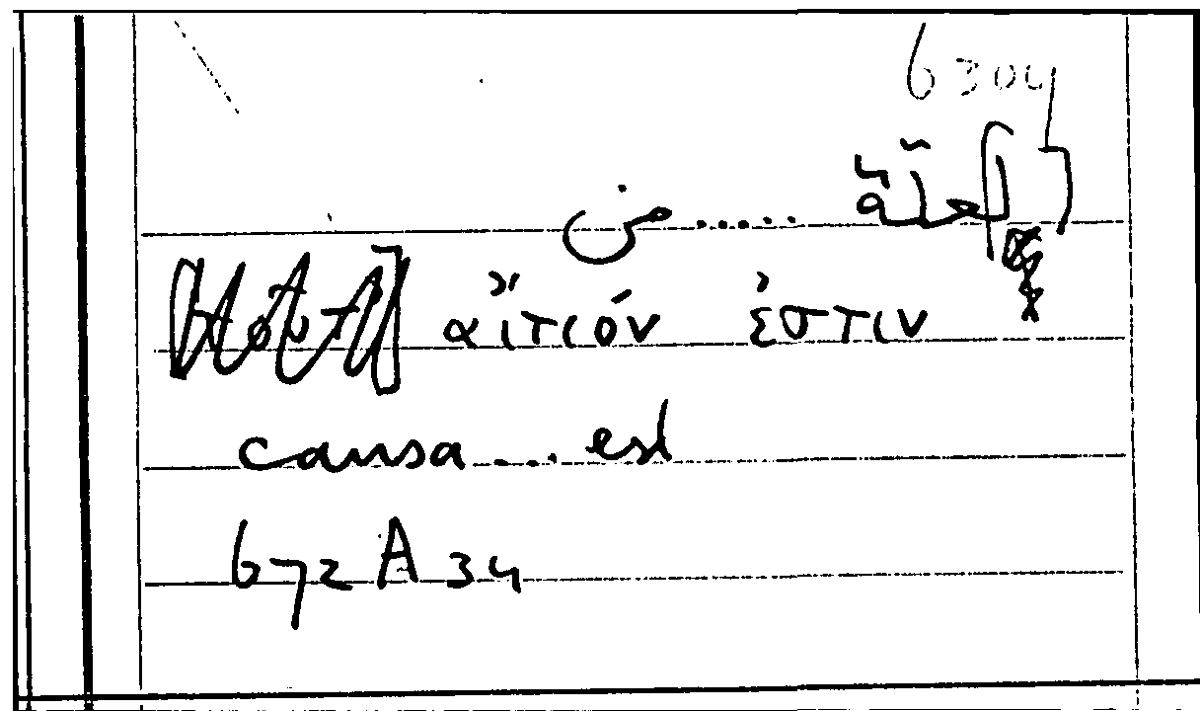 6304
العلّة ..... من
αἴτιόν ἐστιν
causa ... est
672 A 34